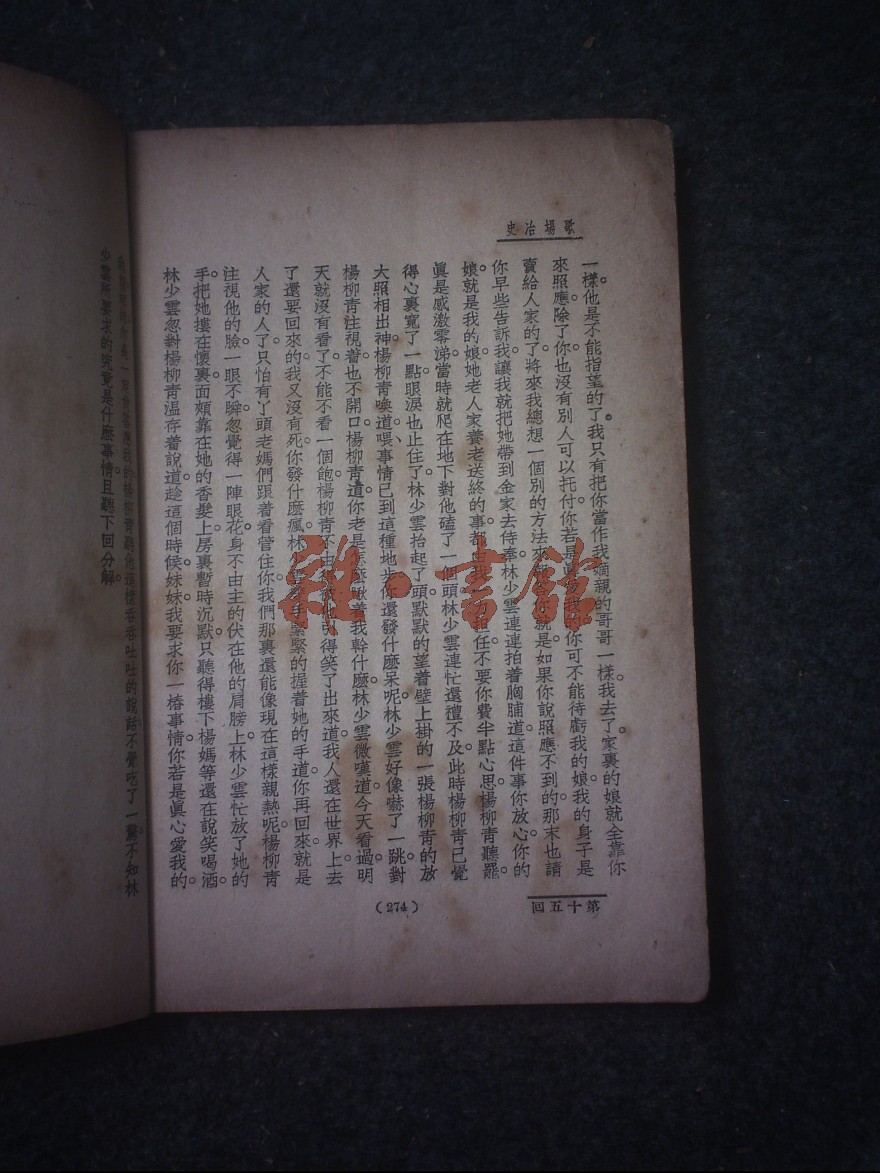 歌場冶史
一樣。他是不能指望的了。我只有把你當作我嫡親的哥哥一樣。我去了。家裏的娘就全靠你
來照應。除了你也沒有別人可以托付。你若是眞我的你可不能待虧我的娘。我的身子是
賣給人家的了。將來我總想一個別的方法來你就是。如果你說照應不到的。那末也請
你早些告訴我。讓我就把她帶到金家去侍奉。林少雲連連拍着胸脯道。這件事你放心。你的
娘。就是我的娘。她老人家養老送終的事。都由我一力担任。不要你費半點心思。楊柳靑聽罷。
眞是感激零涕。當時就爬在地下對他磕了一個頭。林少雲連忙還禮不及。此時楊柳靑已覺
得心裏寬了一點。眼淚也止住了。林少雲抬起了頭。默默的望着壁上掛的一張楊柳靑的放
大照相出神。楊柳靑喚道。喂、事情已到這種地步。你還發什麽呆呢。林少雲好像嚇了一跳。對
楊柳靑注視着也不開口。楊柳靑道。你老是怎麽瞅着我幹什麽。林少雲微嘆道。今天看過。明
天就沒有看了。不能不看一個飽。楊柳靑不由得笑了出來道。我人還在世界上。去
了還要回來的。我又沒有死。你發什麽瘋。林少雲手緊緊的握着她的手道。你再回來。就是
人家的人了。只怕有丫頭老媽們跟着看管住你。我們那裏還能像現在這樣親熱呢。楊柳靑
注視他的臉。一眼不瞬。忽覺得一陣眼花。身不由主的伏在他的肩膀上。林少雲忙放了她的
手。把她摟在懷裏。面頰靠在她的香髮上。房裏暫時沉默。只聽得樓下楊媽等還在說笑喝酒。
林少雲忽對楊柳靑溫存着說道。趁這個時候。妹妹。我要求你一樁事情。你若是眞心愛我的。
第十五回
(274)
我的。楊柳靑聽他這樣吞吞吐吐的說話。不覺吃了一驚。不知林
少雲所要求的究竟是什麽事情。且聽下回分解。
雜·書館